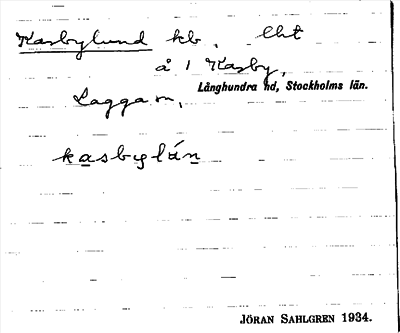 Kasbylund kb. lht
å 1 Kasby,
Långhundra hd, Stockholms län.
Lagga sn,
kasbylún
JÖRAN SAHLGREN 1934.